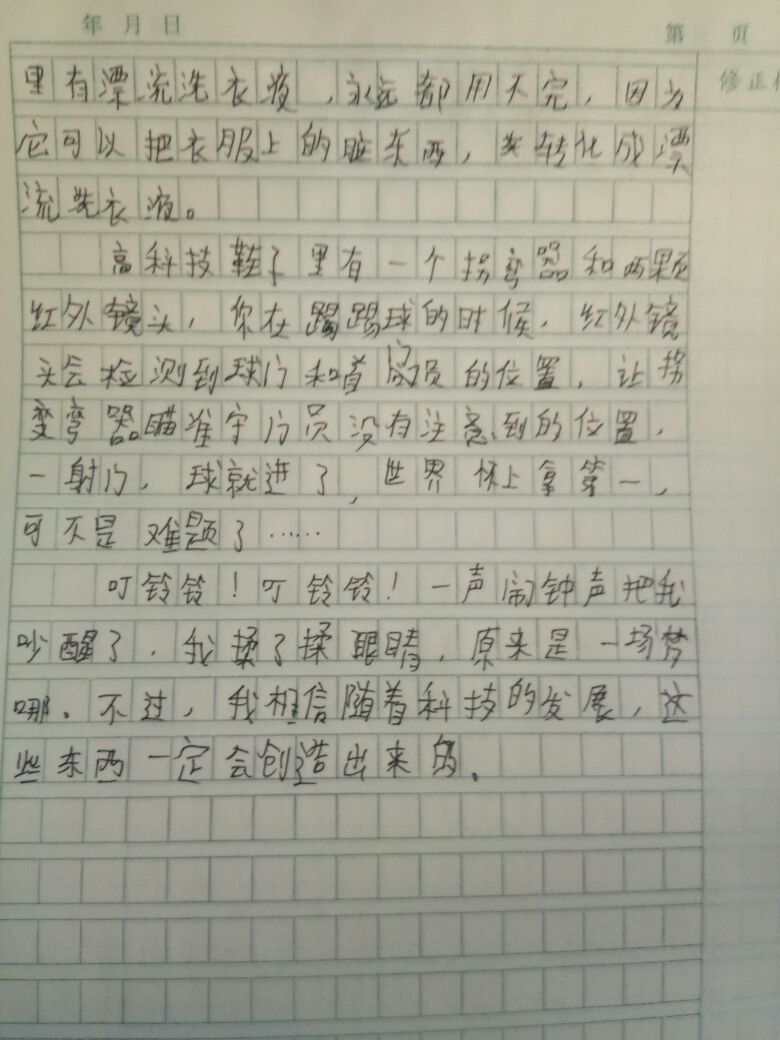 年 月 日
第 页
修正
里有漂流洗衣液，永远都用不完，因为
它可以把衣服上的脏东西，转化成漂
流洗衣液。
高科技鞋子里有一个拐弯器和两颗
红外镜头，你在踢踢球的时候，红外镜
头会检测到球门和首员的位置，让拐
变弯器瞄准守门员没有注意到的位置，
一射门，球就进了，世界杯上拿第一，
可不是难题了……
叮铃铃！叮铃铃！一声闹钟声把我
吵醒了，我揉了揉眼睛，原来是一场梦
哪。不过，我相信随着科技的发展，这
些东西一定会创造出来的。